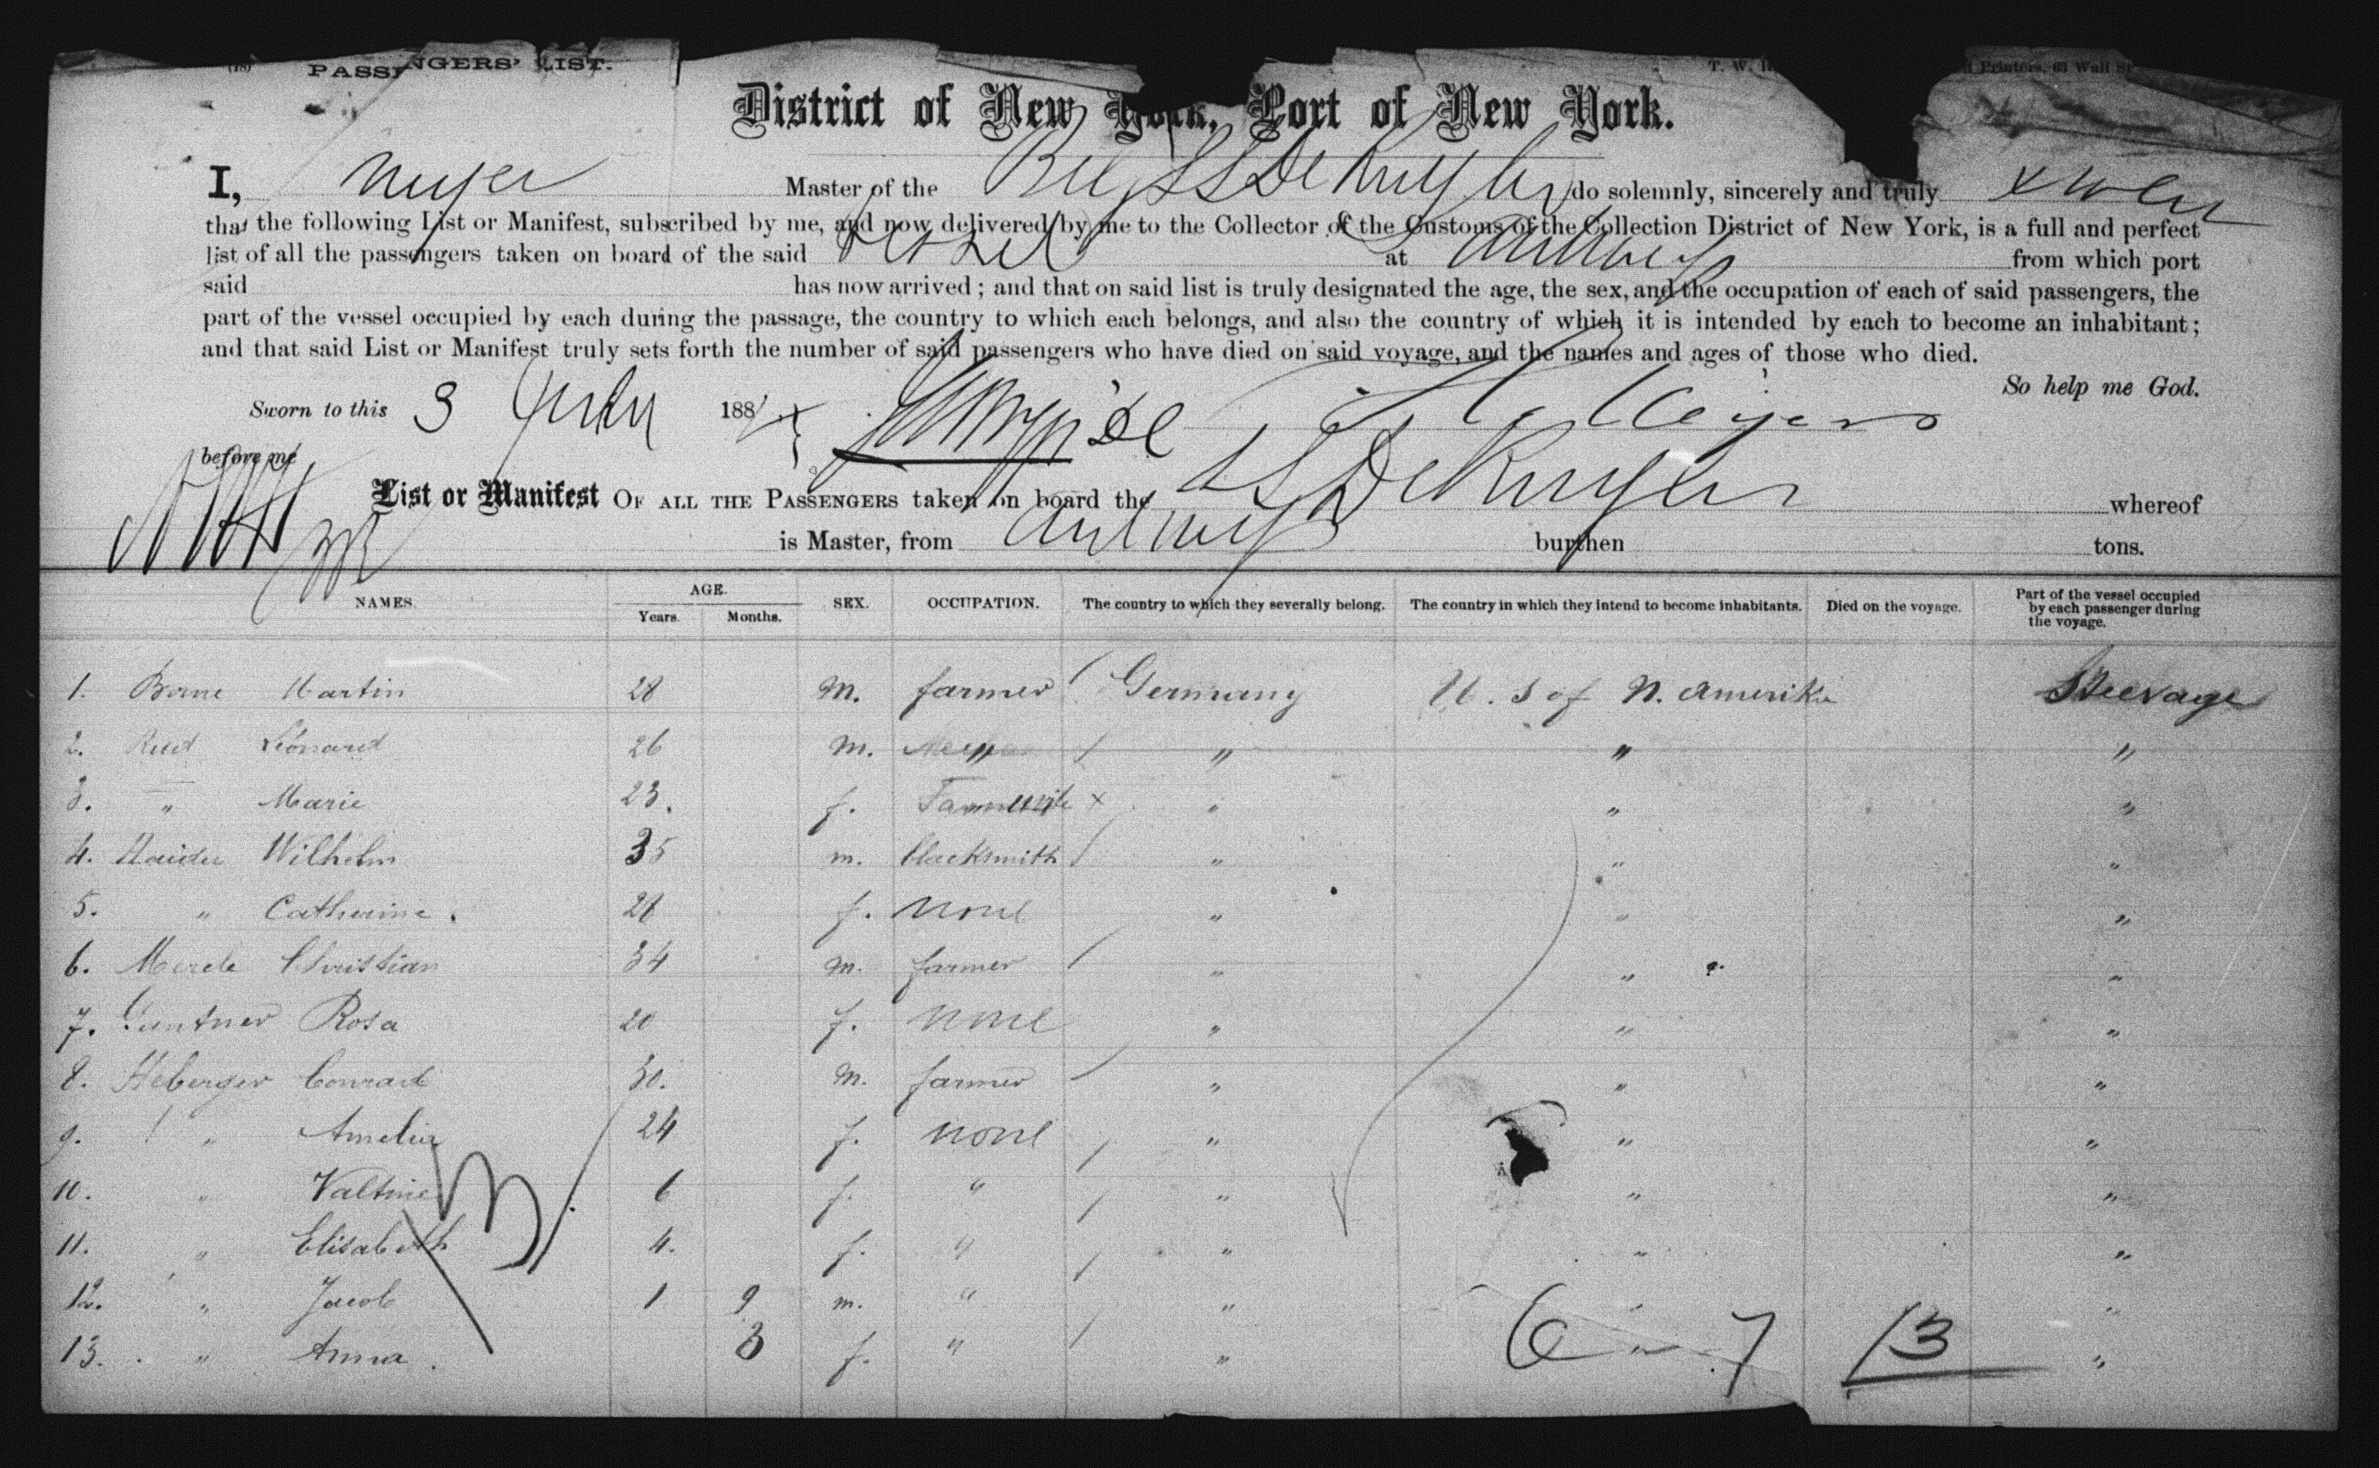 PASSENGERS' LIST.
T. W. Printers, 61 Wall St
District of New York, Port of New York.
I, Meyer Master of the Belg SS De Ruyter do solemnly, sincerely and truly swear
that the following List or Manifest, subscribed by me, and now delivered by me to the Collector of the Customs of the Collection District of New York, is a full and perfect
list of all the passengers taken on board of the said vessel at Antwerp from which port
said has now arrived; and that on said list is truly designated the age, the sex, and the occupation of each of said passengers, the
part of the vessel occupied by each during the passage, the country to which each belongs, and also the country of which it is intended by each to become an inhabitant;
and that said List or Manifest truly sets forth the number of said passengers who have died on said voyage, and the names and ages of those who died.
So help me God.
Sworn to this 3 July 188 Meyer
before me
List or Manifest OF ALL THE PASSENGERS taken on board the SS De Ruyter whereof
is Master, from Antwerp burthen tons.
NAMES. AGE. Years. Months. SEX. OCCUPATION. The country to which they severally belong. The country in which they intend to become inhabitants. Died on the voyage. Part of the vessel occupied by each passenger during the voyage.
1. Martin 28 M. farmer Germany U. S of N. Amerika Steerage
2. Leonard 26 m. " " "
3. " Marie 23. f. " " "
4. Wilhelm 35 m. blacksmith " " "
5. " Catherine. 28 f. none " " "
6. Christian 34 m. farmer " " "
7. Guntner Rosa 20 f. none " " "
8. Heberger Conrad 30. m. farmer " " "
9. " Amelia 24 f. none " " "
10. " 6 f. " " " "
11. " Elisabeth 4. f. " " " "
12. " Jacob 1 9 m. " " " "
13. " Anna. 3 f. " " " "
6 7 13